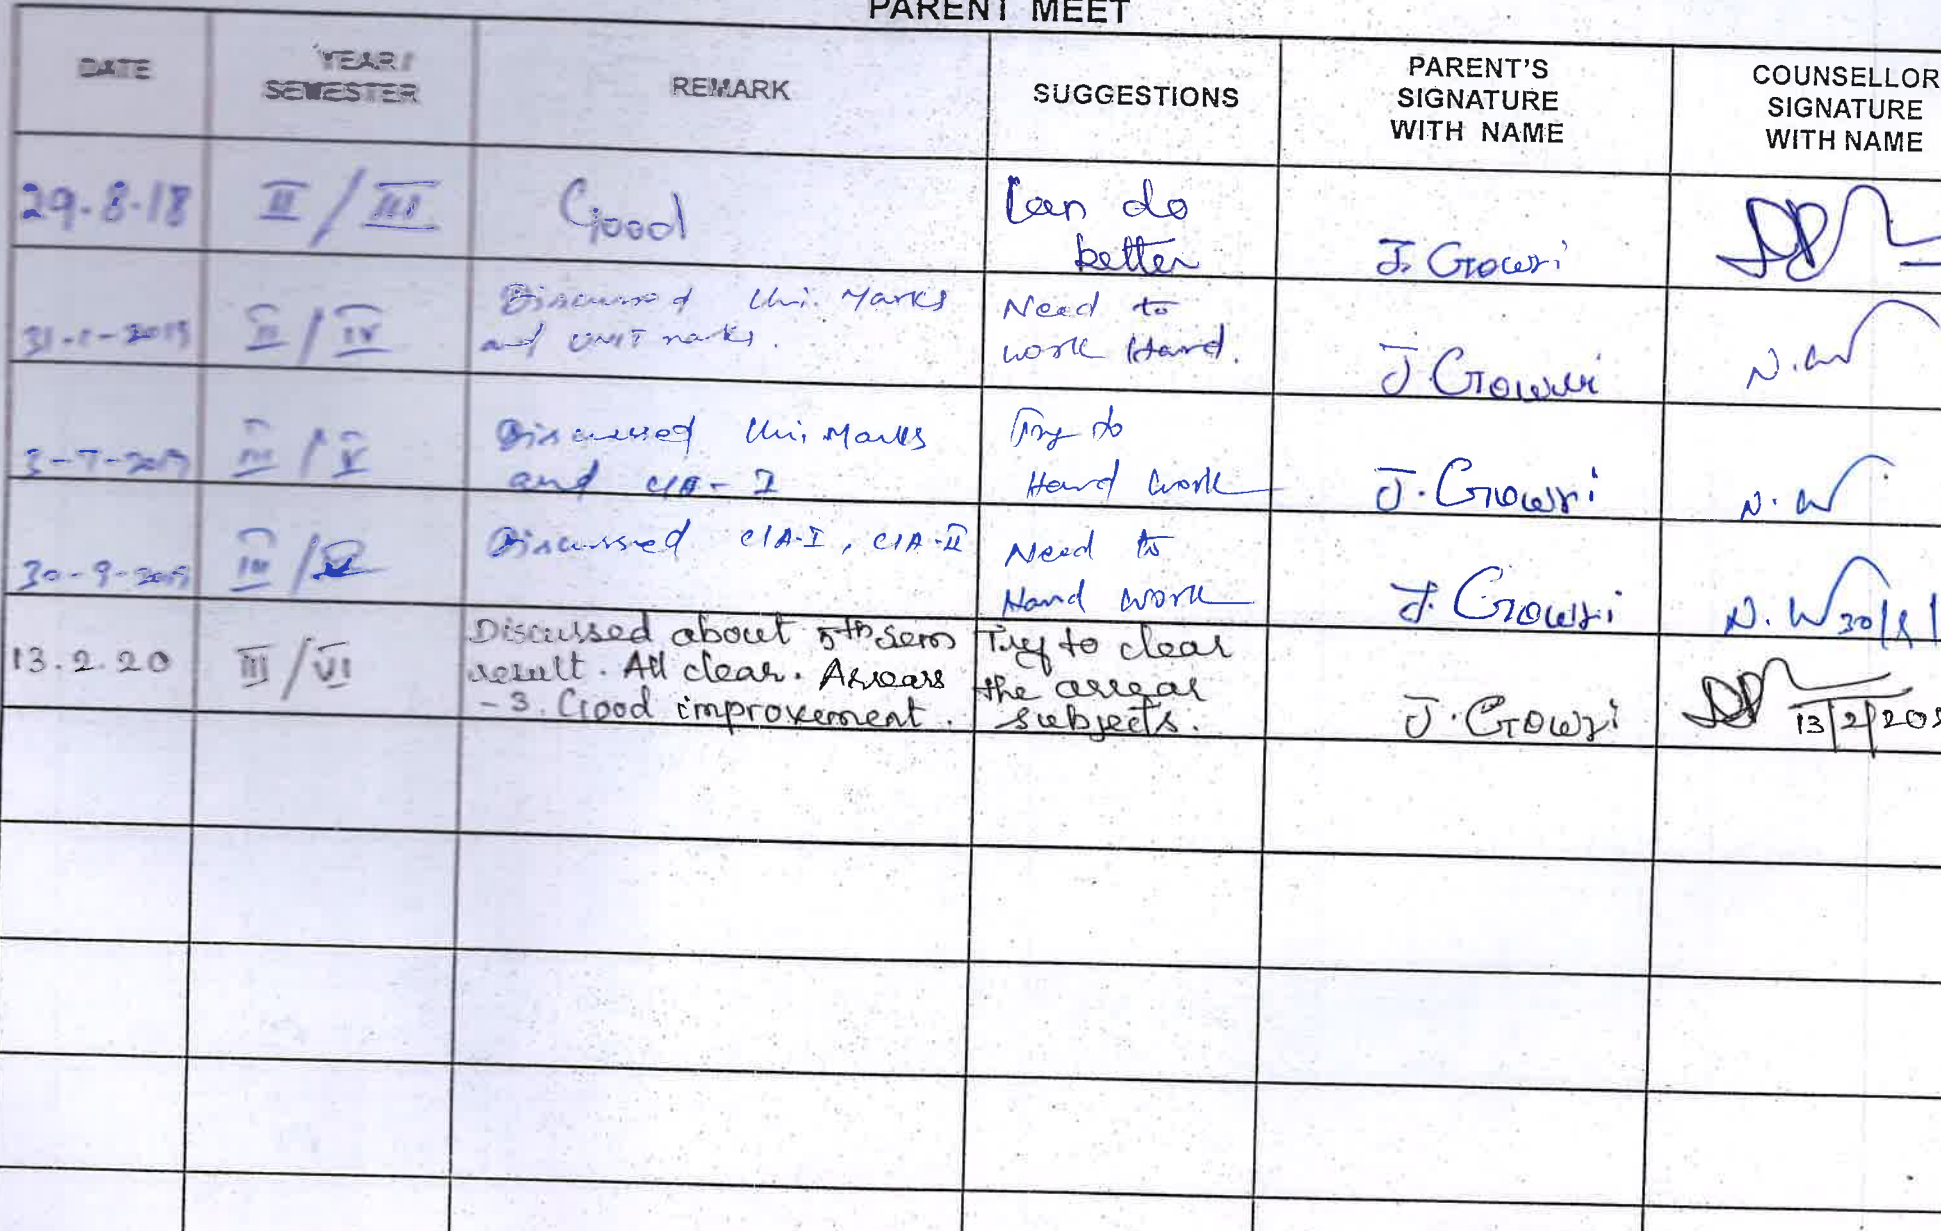 PARENT MEET
DATE
YEAR /
SEMESTER
REMARK
SUGGESTIONS
PARENT'S
SIGNATURE
WITH NAME
COUNSELLOR
SIGNATURE
WITH NAME
29.8.18
II / III
Good
Can do
better
J. Gowri
31-1-2019
II / IV
Discussed Uni. Marks
and UNIT marks.
Need to
work Hard.
J. Gowri
3-7-2019
III / V
Discussed Uni. Marks
and CIA - I
Try to
Hard work
J. Gowri
30-9-2019
III / V
Discussed CIA-I, CIA-II
Need to
Hard work
J. Gowri
13.2.20
III / VI
Discussed about 5th Sem
result. All clear. Arrears
- 3. Good improvement.
Try to clear
the arrear
subjects.
J. Gowri
13/2/20